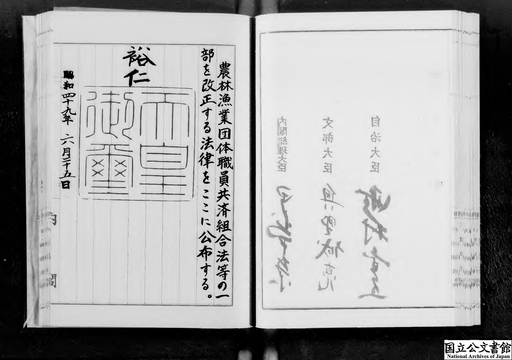 農林漁業団体職員共済組合法等の一
部を改正する法律をここに公布する。
裕仁
天皇
御璽
昭和四十九年 六月二十五日
内閣
自治大臣
文部大臣 奥野誠亮
内閣総理大臣
国立公文書館
National Archives of Japan